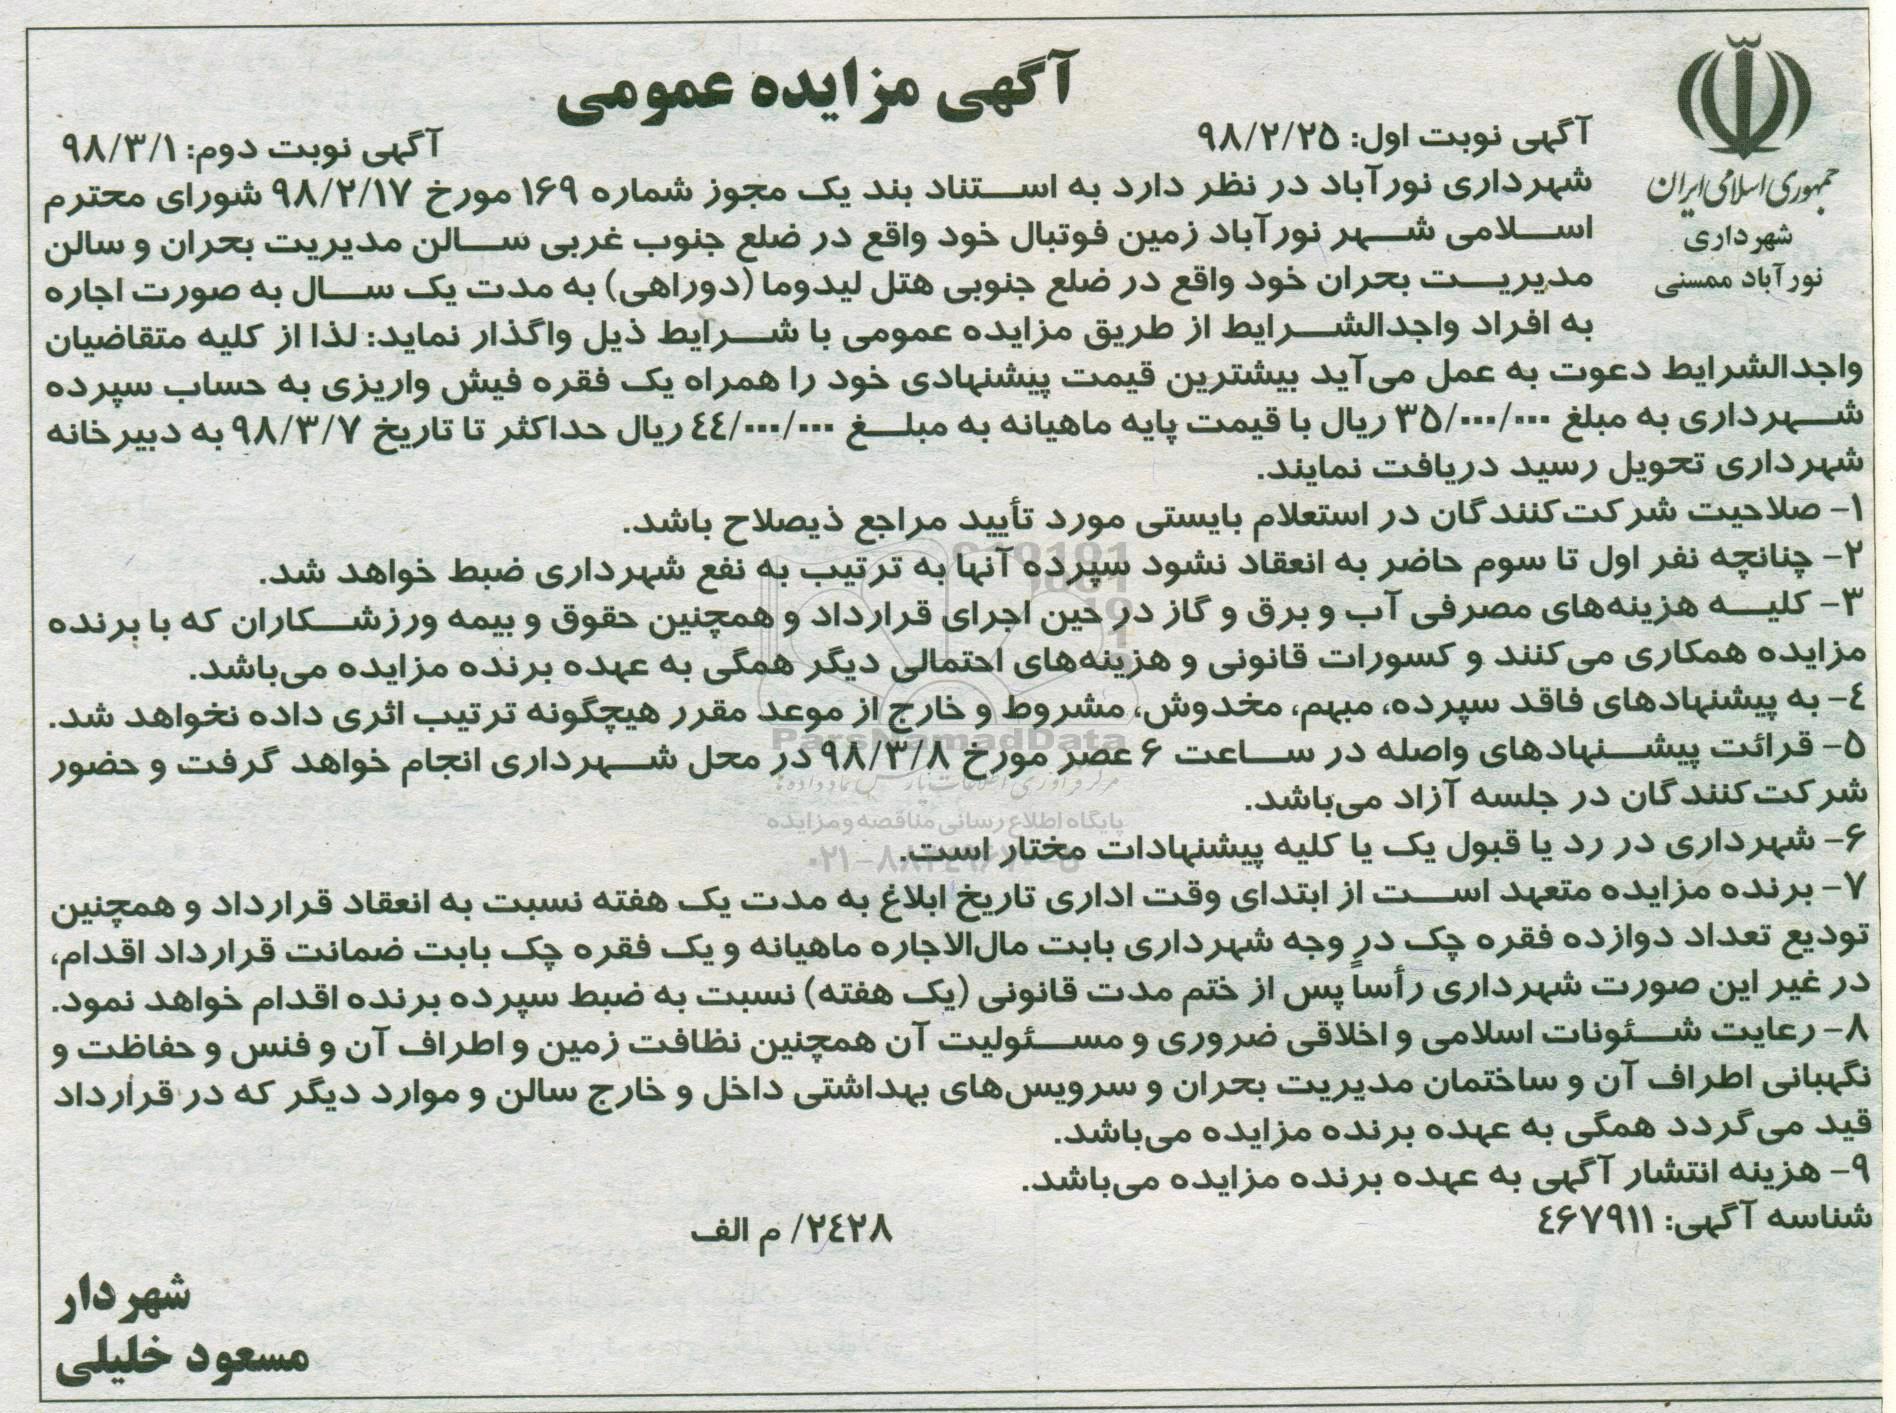 آگهی مزایده عمومی
جمهوری اسلامی ایران
شهرداری
نورآباد ممسنی
آگهی نوبت اول: ۹۸/۲/۲۵
آگهی نوبت دوم: ۹۸/۳/۱
شهرداری نورآباد در نظر دارد به استناد بند یک مجوز شماره ۱۶۹ مورخ ۹۸/۲/۱۷ شورای محترم
اسلامی شهر نورآباد زمین فوتبال خود واقع در ضلع جنوب غربی سالن مدیریت بحران و سالن
مدیریت بحران خود واقع در ضلع جنوبی هتل لیدوما (دوراهی) به مدت یک سال به صورت اجاره
به افراد واجدالشرایط از طریق مزایده عمومی با شرایط ذیل واگذار نماید: لذا از کلیه متقاضیان
واجدالشرایط دعوت به عمل می‌آید بیشترین قیمت پیشنهادی خود را همراه یک فقره فیش واریزی به حساب سپرده
شهرداری به مبلغ ۳۵/۰۰۰/۰۰۰ ریال با قیمت پایه ماهیانه به مبلغ ۴۴/۰۰۰/۰۰۰ ریال حداکثر تا تاریخ ۹۸/۳/۷ به دبیرخانه
شهرداری تحویل رسید دریافت نمایند.
۱- صلاحیت شرکت‌کنندگان در استعلام بایستی مورد تأیید مراجع ذیصلاح باشد.
۲- چنانچه نفر اول تا سوم حاضر به انعقاد نشود سپرده آنها به ترتیب به نفع شهرداری ضبط خواهد شد.
۳- کلیه هزینه‌های مصرفی آب و برق و گاز در حین اجرای قرارداد و همچنین حقوق و بیمه ورزشکاران که با برنده
مزایده همکاری می‌کنند و کسورات قانونی و هزینه‌های احتمالی دیگر همگی به عهده برنده مزایده می‌باشد.
۴- به پیشنهادهای فاقد سپرده، مبهم، مخدوش، مشروط و خارج از موعد مقرر هیچگونه ترتیب اثری داده نخواهد شد.
ParsNamadData
۵- قرائت پیشنهادهای واصله در ساعت ۶ عصر مورخ ۹۸/۳/۸ در محل شهرداری انجام خواهد گرفت و حضور
شرکت‌کنندگان در جلسه آزاد می‌باشد.
پایگاه اطلاع رسانی مناقصه و مزایده
۶- شهرداری در رد یا قبول یک یا کلیه پیشنهادات مختار است.
۷- برنده مزایده متعهد است از ابتدای وقت اداری تاریخ ابلاغ به مدت یک هفته نسبت به انعقاد قرارداد و همچنین
تودیع تعداد دوازده فقره چک در وجه شهرداری بابت مال‌الاجاره ماهیانه و یک فقره چک بابت ضمانت قرارداد اقدام،
در غیر این صورت شهرداری رأساً پس از ختم مدت قانونی (یک هفته) نسبت به ضبط سپرده برنده اقدام خواهد نمود.
۸- رعایت شئونات اسلامی و اخلاقی ضروری و مسئولیت آن همچنین نظافت زمین و اطراف آن و فنس و حفاظت و
نگهبانی اطراف آن و ساختمان مدیریت بحران و سرویس‌های بهداشتی داخل و خارج سالن و موارد دیگر که در قرارداد
قید می‌گردد همگی به عهده برنده مزایده می‌باشد.
۹- هزینه انتشار آگهی به عهده برنده مزایده می‌باشد.
شناسه آگهی: ۴۶۷۹۱۱
۲۴۲۸/ م الف
شهردار
مسعود خلیلی